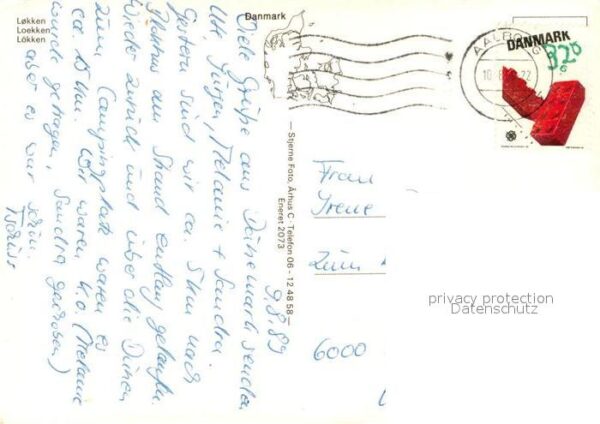 Løkken
Loekken
Lökken
Danmark
AALBO
10.8.
DANMARK
3.20
9.8.89
Viele Grüße aus Dänemark senden
Uli, Jürgen, Melanie + Sandra
Gestern sind wir ca. 5km nach
am Strand entlang gelaufen.
Wieder zurück und über die Dünen
zum Campingplatz waren es
ca. 15 km. Wir waren k.o. (Melanie
wurde getragen, Sandra geschoben)
aber es war schön.
Tschüss
— Stjerne Foto, Århus C · Telefon 06 - 12 48 58 —
Eneret 2073
Frau
Irene
Zum
6000
privacy protection
Datenschutz